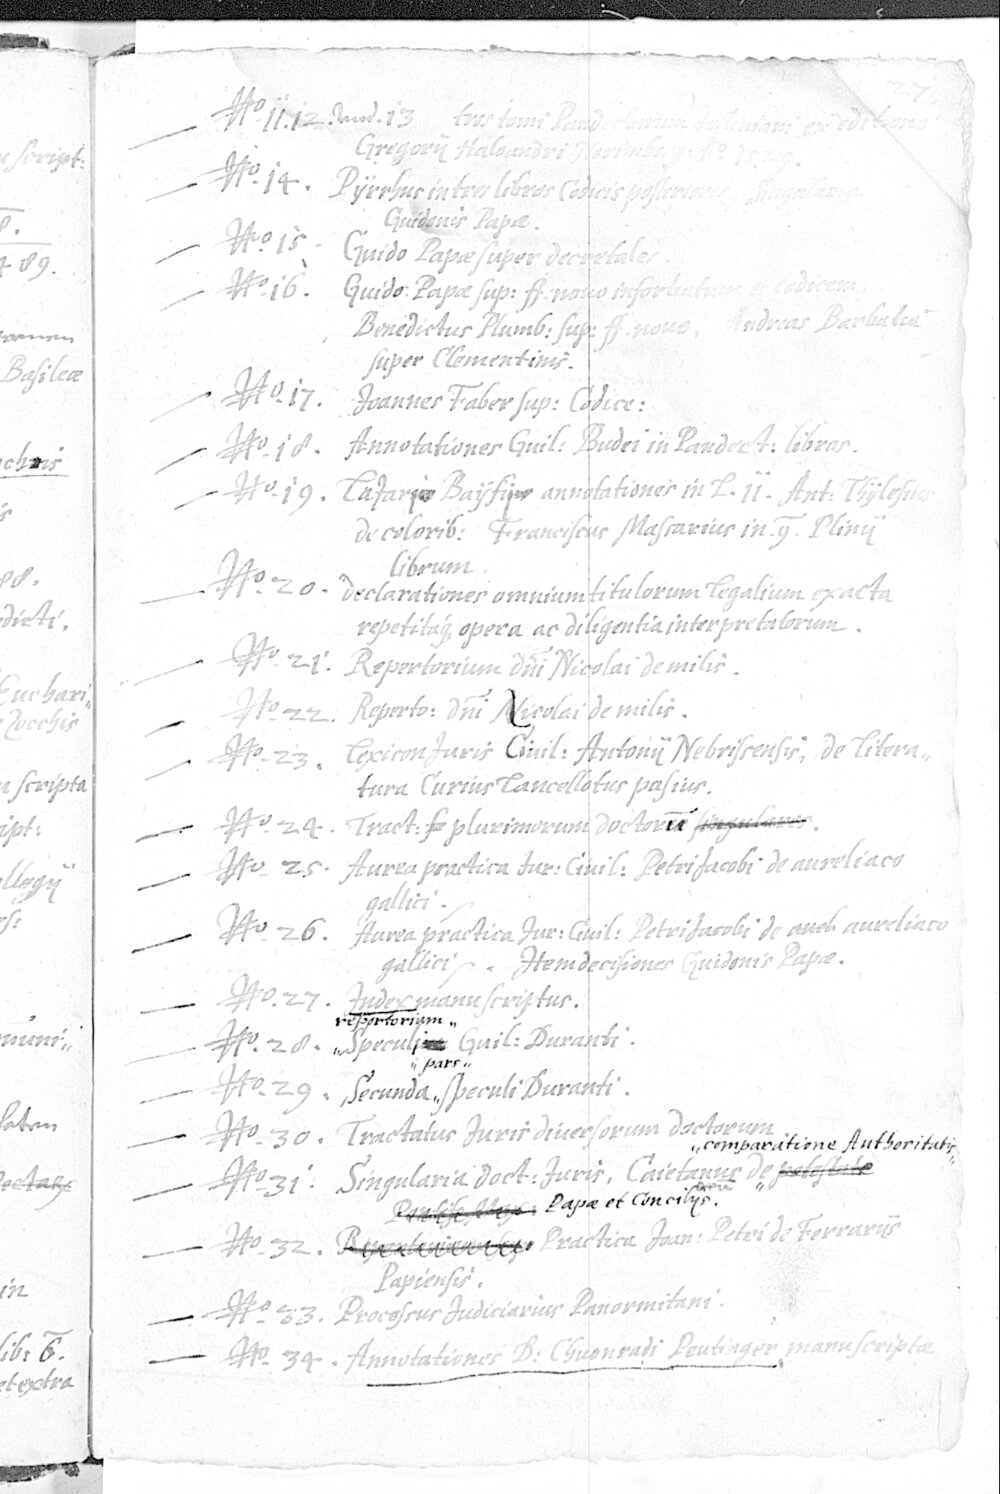 n script:
8.
4 89.
Basileæ
ochis
is
88.
dicti.
Euchari„
Zocchis
n scripta
ipt:
llegij
es:
muni„
in
lib: 6.
et extra
27.
No. 11. 12. und. 13 tres tomi Pandectarum Justiniani ex editione
Gregorij Haloandri Norimberg:
No. 14. Pÿrrhus in tres libros Codicis posteriores Singularia
Guidonis Papæ.
No. 15. Guido Papæ super decretales.
No. 16. Guido Papæ sup: ff. novo infortiatum et codicem.
Benedictus Plumb: sup: ff. novo. Andreas Barbatia
super Clementinis.
No. 17. Joannes Faber sup: Codice:
No. 18. Annotationes Guil: Budei in Pandect: libros.
No. 19. Lazari Baÿfij annotationes in L. II. Ant: Thylesius
de colorib: Franciscus Massarius in. 9. Plinij
librum.
No. 20. declarationes omnium titulorum legalium exacta
repetitaq opera ac diligentia interpretatorum.
No. 21. Repertorium dni Nicolai de milis.
No. 22. Reperto: dni Nicolai de milis.
No. 23. Lexicon Juris Civil: Antonij Nebriscensis, de litera„
tura Curius Lancellotus pasius.
No. 24. Tract: plurimorum doctorū singulares.
No. 25. Aurea practica Jur: Civil: Petri Jacobi de aureliaco
gallici.
No. 26. Aurea practica Jur: Civil: Petri Jacobi de aureliaco
gallici. Item decisiones Guidonis Papæ.
No. 27. Index manuscriptus.
repertorium„
No. 28. „Speculi Guil: Duranti.
„pars„
No. 29. Secunda„ speculi Duranti.
No. 30. Tractatus Juris diversorum doctorum
„comparatione Authoritatis„
No. 31. Singularia doct: Juris, Caietanus de potestate
Papæ et Concilijs.
No. 32. Practica Joan: Petri de Ferrarijs
Papiensis.
No. 33. Processus Judiciarius Panormitani.
No. 34. Annotationes D: Chuonradi Peutinger manuscriptæ